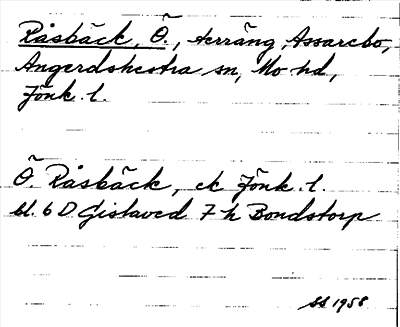 Råsbäck, Ö., terräng, Assarebo,
Angerdshestra sn, Mo hd,
Jönk. l.
Ö. Råsbäck, ek Jönk. l.
bl. 6 D Gislaved 7 h Bondstorp
SS 1958